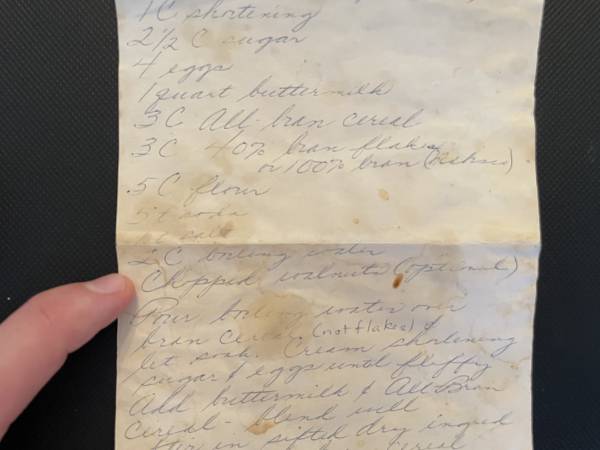 1 C shortening
2 1/2 C sugar
4 eggs
1 quart buttermilk
3 C All-bran cereal
3 C 40% bran flakes
or 100% bran
5 C flour
soda
salt
2 C boiling water
Chopped walnuts (optional)
Pour boiling water over
bran cereal (not flakes) &
let soak. Cream shortening
sugar & eggs until fluffy
Add buttermilk & All Bran
cereal - blend well
Stir in sifted dry ingred
cereal